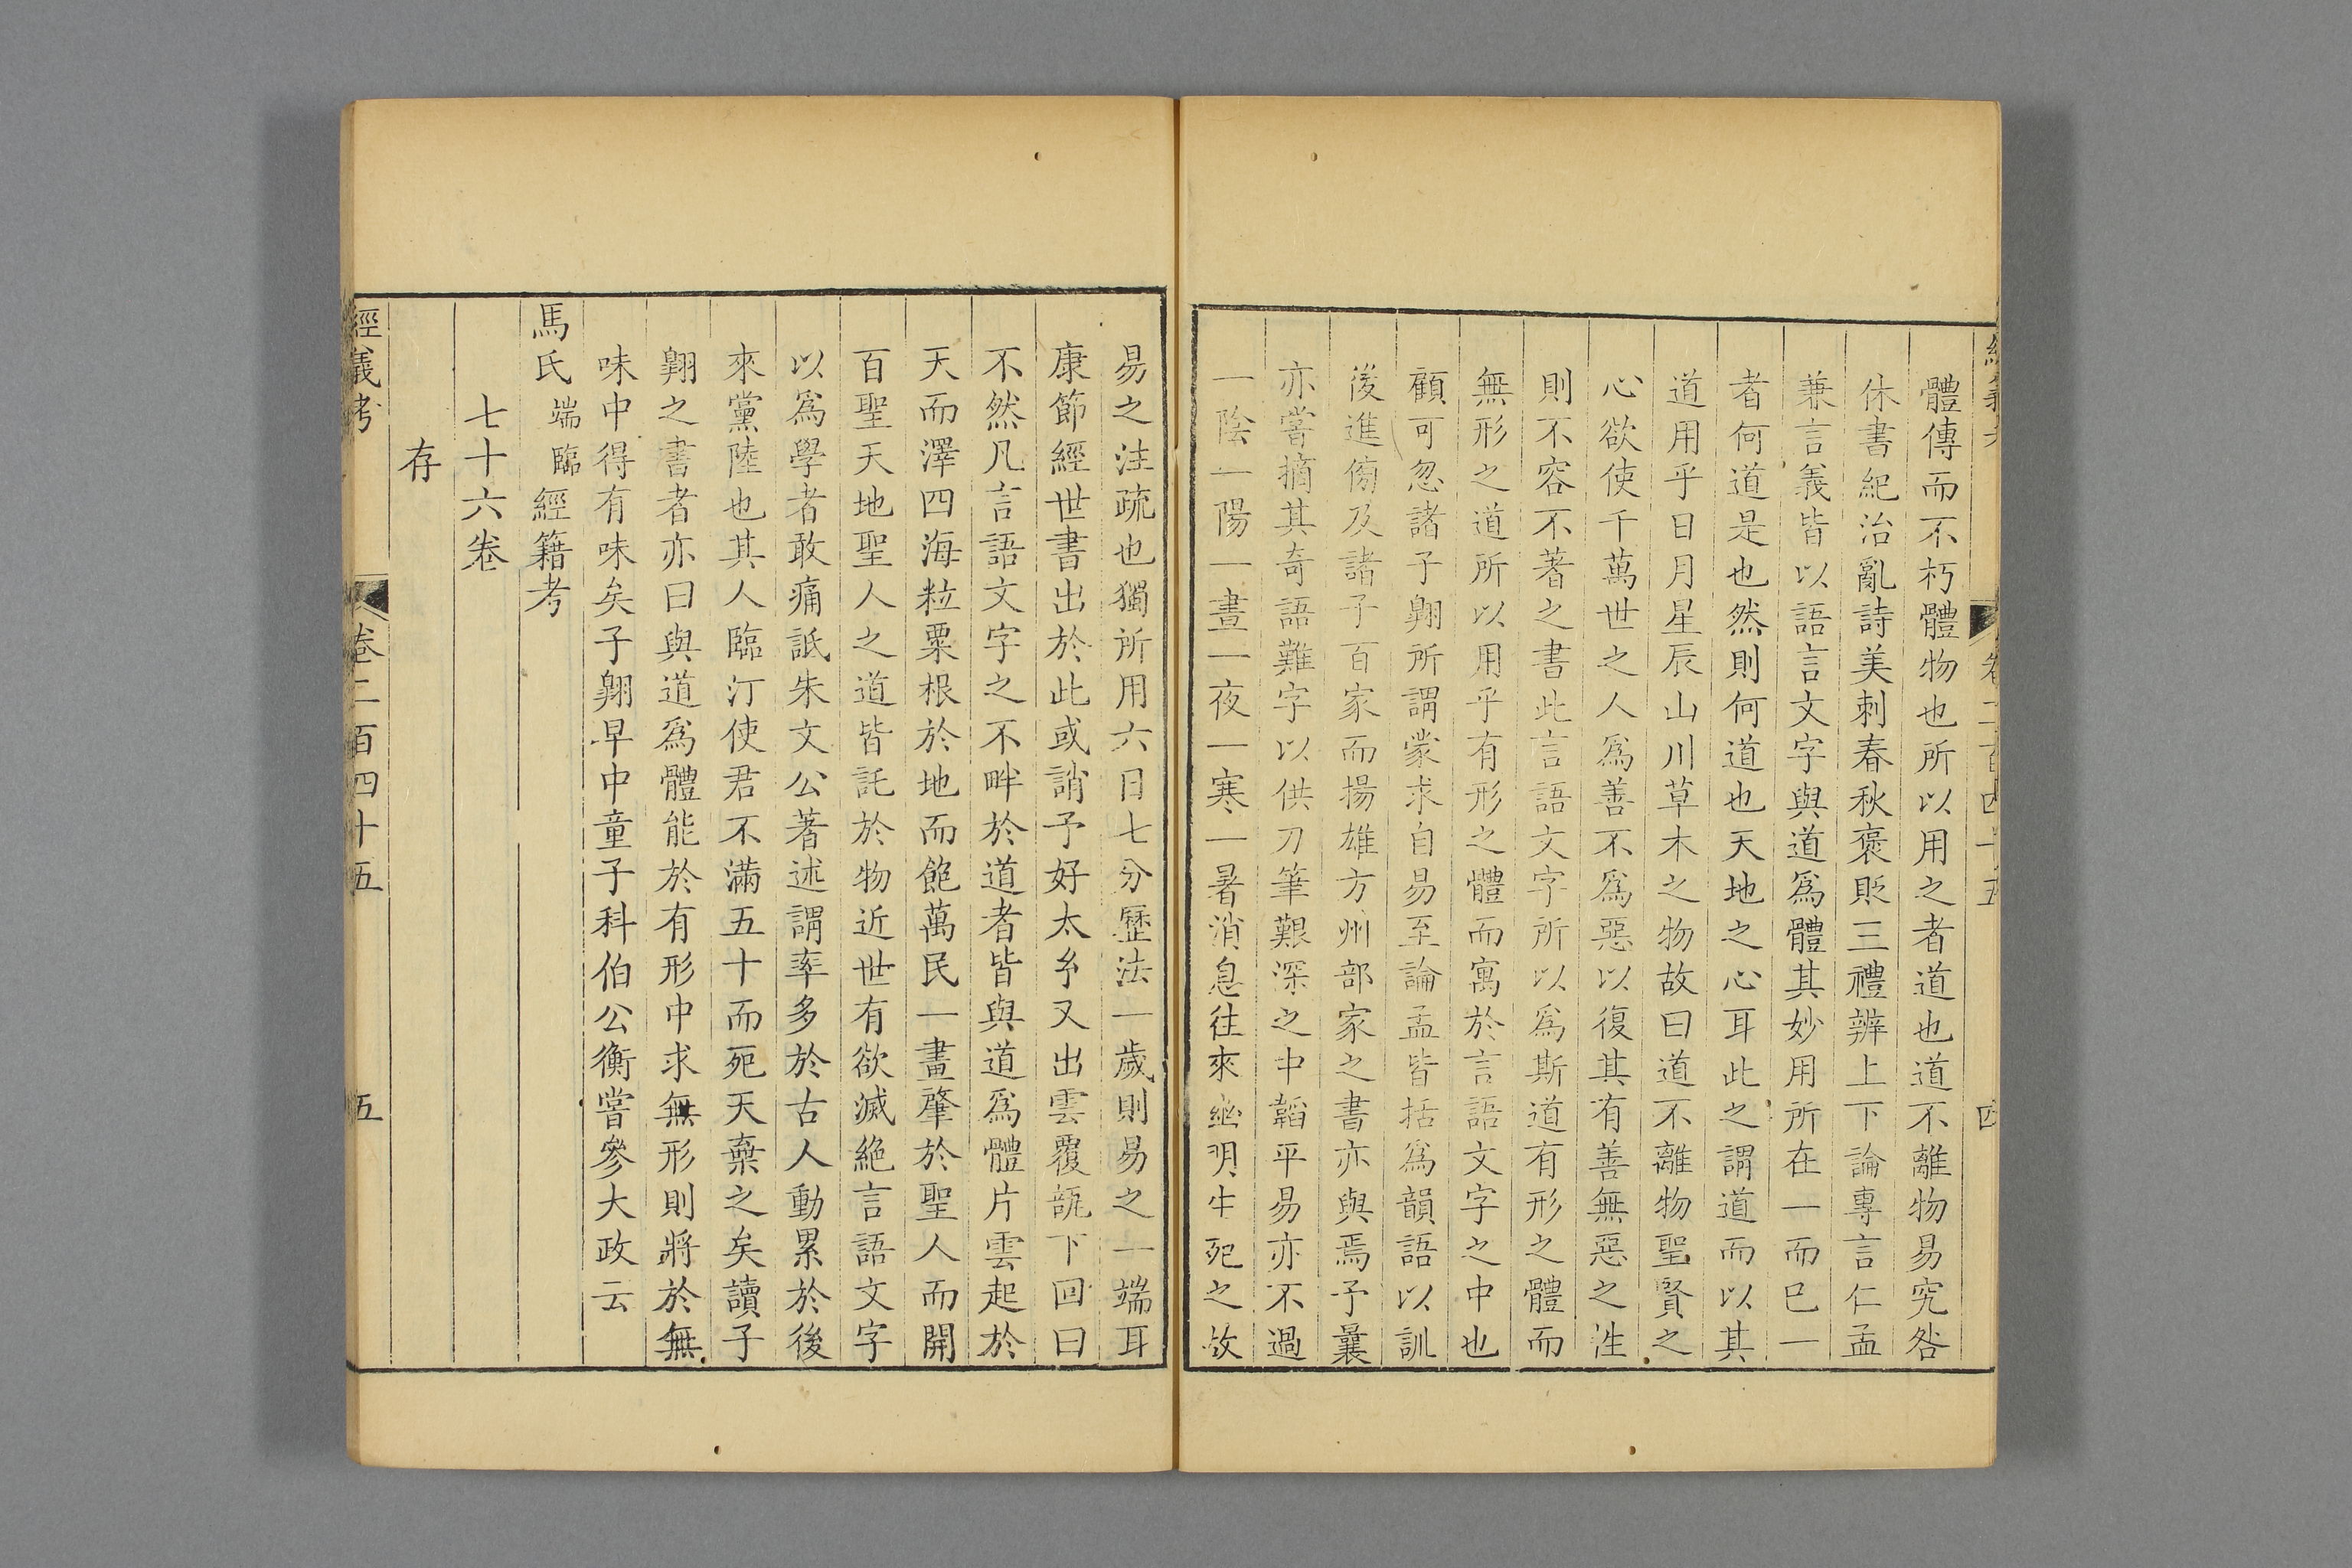 經義考 卷二百四十五 四
體傳而不朽體物也所以用之者道也道不離物易究咎
休書紀治亂詩美刺春秋褒貶三禮辨上下論專言仁孟
兼言義皆以語言文字與道爲體其妙用所在一而已一
者何道是也然則何道也天地之心耳此之謂道而以其
道用乎日月星辰山川草木之物故曰道不離物聖賢之
心欲使千萬世之人爲善不爲惡以復其有善無惡之性
則不容不著之書此言語文字所以爲斯道有形之體而
無形之道所以用乎有形之體而寓於言語文字之中也
顧可忽諸子翺所謂蒙求自易至論孟皆括爲韻語以訓
後進㑃及諸子百家而揚雄方州部家之書亦與焉予曩
亦嘗摘其奇語難字以供刀筆艱深之中韜平易亦不過
一陰一陽一晝一夜一寒一暑消息往來幽明生死之故
易之注疏也獨所用六日七分歷法一歲則易之一端耳
康節經世書出於此或誚予好太𤣥又出雲覆瓿下回曰
不然凡言語文字之不畔於道者皆與道爲體片雲起於
天而澤四海粒粟根於地而飽萬民一畫肇於聖人而開
百聖天地聖人之道皆託於物近世有欲滅絶言語文字
以爲學者敢痛詆朱文公著述謂率多於古人動累於後
來黨陸也其人臨汀使君不滿五十而死天棄之矣讀子
翺之書者亦曰與道爲體能於有形中求無形則將於無
味中得有味矣子翺早中童子科伯公衡嘗參大政云
馬氏端臨經籍考
七十六卷
存
經義考 卷二百四十五 五